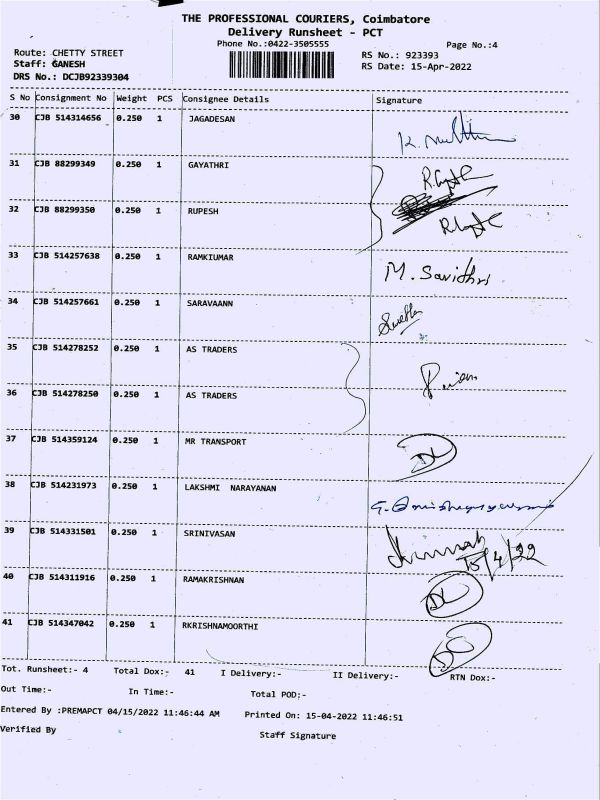 THE PROFESSIONAL COURIERS, Coimbatore
Delivery Runsheet - PCT
Phone No.:0422-3505555
Page No.:4
Route: CHETTY STREET
RS No.: 923393
Staff: GANESH
RS Date: 15-Apr-2022
DRS No.: DCJB92339304
S No Consignment No Weight PCS Consignee Details Signature
30 CJB 514314656 0.250 1 JAGADESAN
31 CJB 88299349 0.250 1 GAYATHRI
32 CJB 88299350 0.250 1 RUPESH
33 CJB 514257638 0.250 1 RAMKIUMAR M. Savithri
34 CJB 514257661 0.250 1 SARAVAANN
35 CJB 514278252 0.250 1 AS TRADERS
36 CJB 514278250 0.250 1 AS TRADERS
37 CJB 514359124 0.250 1 MR TRANSPORT DL
38 CJB 514231973 0.250 1 LAKSHMI NARAYANAN
39 CJB 514331501 0.250 1 SRINIVASAN 15/4/22
40 CJB 514311916 0.250 1 RAMAKRISHNAN DL
41 CJB 514347042 0.250 1 RKRISHNAMOORTHI
Tot. Runsheet:- 4 Total Dox:- 41 I Delivery:- II Delivery:- RTN Dox:-
Out Time:- In Time:- Total POD:-
Entered By :PREMAPCT 04/15/2022 11:46:44 AM Printed On: 15-04-2022 11:46:51
Verified By Staff Signature